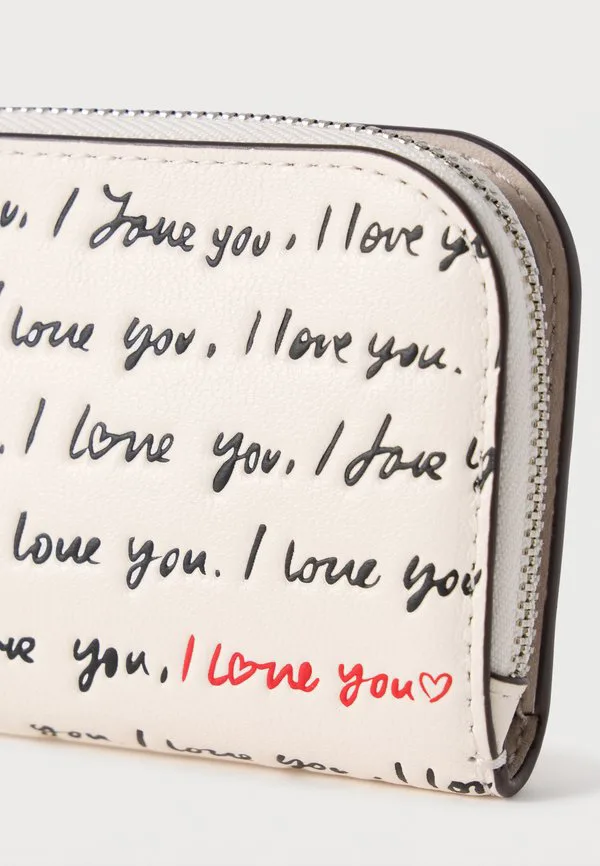 u, I love you, I love yo
I love you, I love you. I
. I love you, I love y
love you. I love you
ve you, I love you♡
you I love you. I lov